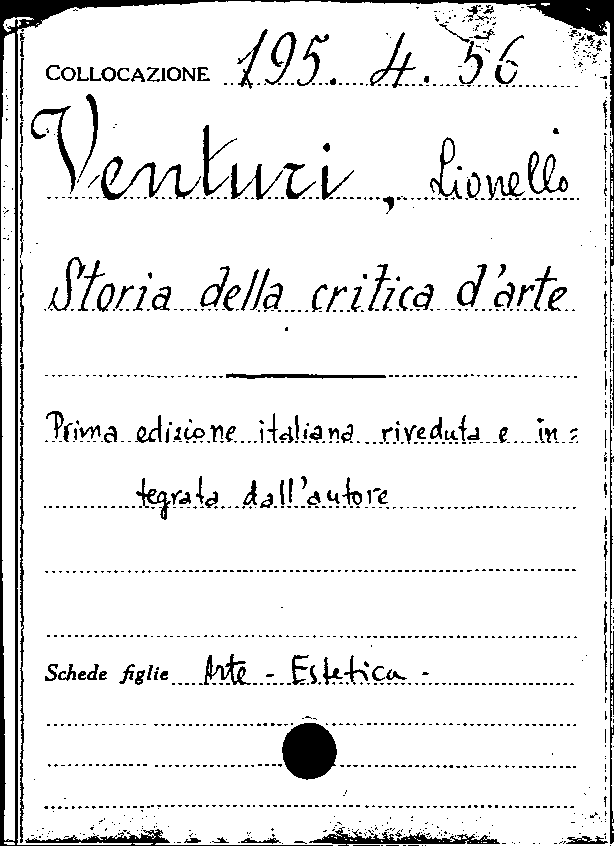 COLLOCAZIONE 195. 4. 56
Venturi, Lionello
Storia della critica d'arte
Prima edizione italiana riveduta e in=
tegrata dall'autore
Schede figlie Arte - Estetica -